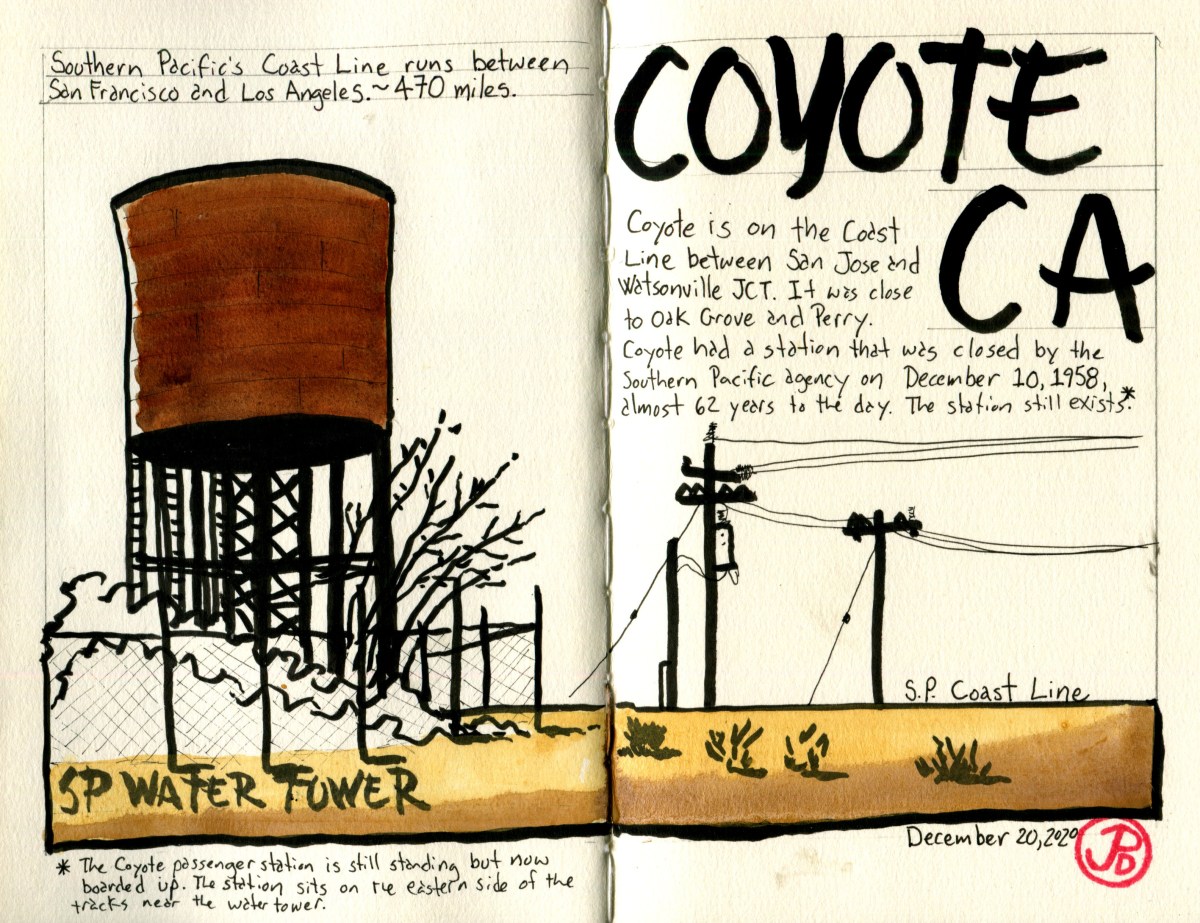 Southern Pacific's Coast Line runs between
San Francisco and Los Angeles. ~ 470 miles.
SP WATER TOWER
* The Coyote passenger station is still standing but now
boarded up. The station sits on the eastern side of the
tracks near the water tower.
COYOTE
CA
Coyote is on the Coast
Line between San Jose and
Watsonville JCT. It was close
to Oak Grove and Perry.
Coyote had a station that was closed by the
Southern Pacific agency on December 10, 1958,
almost 62 years to the day. The station still exists.*
S.P. Coast Line
December 20, 2020
JPD